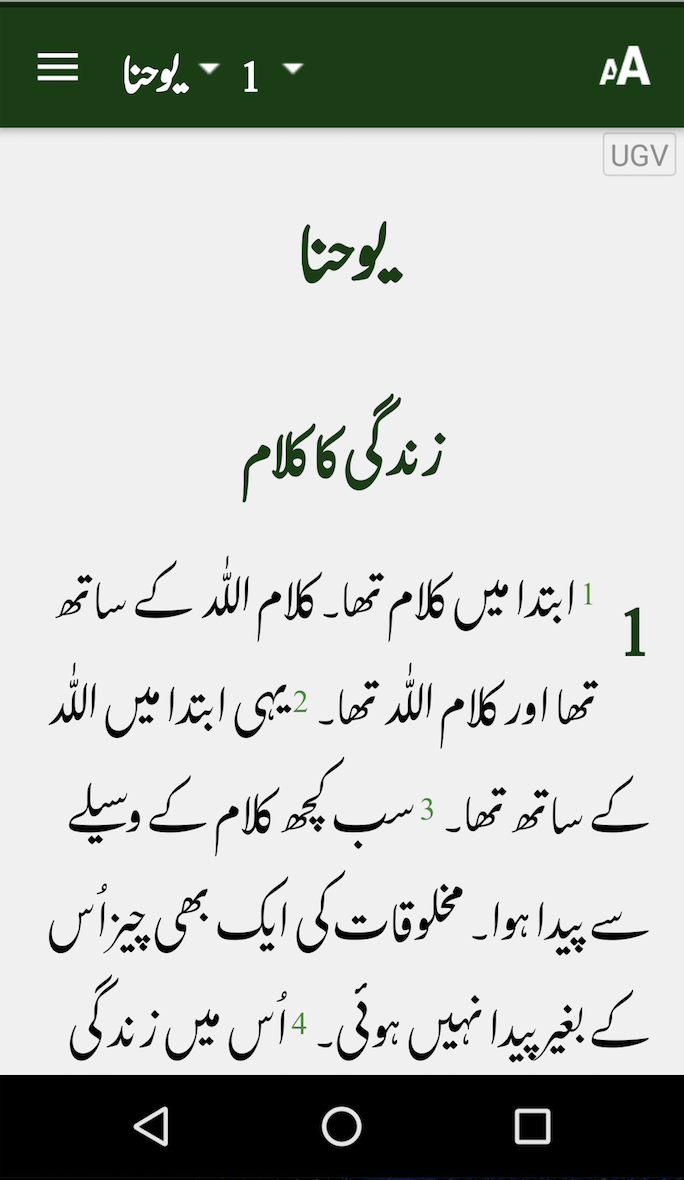 یوحنا 1
AA
UGV
یوحنا
زندگی کا کلام
1 1 ابتدا میں کلام تھا۔ کلام اللہ کے ساتھ
تھا اور کلام اللہ تھا۔ 2 یہی ابتدا میں اللہ
کے ساتھ تھا۔ 3 سب کچھ کلام کے وسیلے
سے پیدا ہوا۔ مخلوقات کی ایک بھی چیز اُس
کے بغیر پیدا نہیں ہوئی۔ 4 اُس میں زندگی